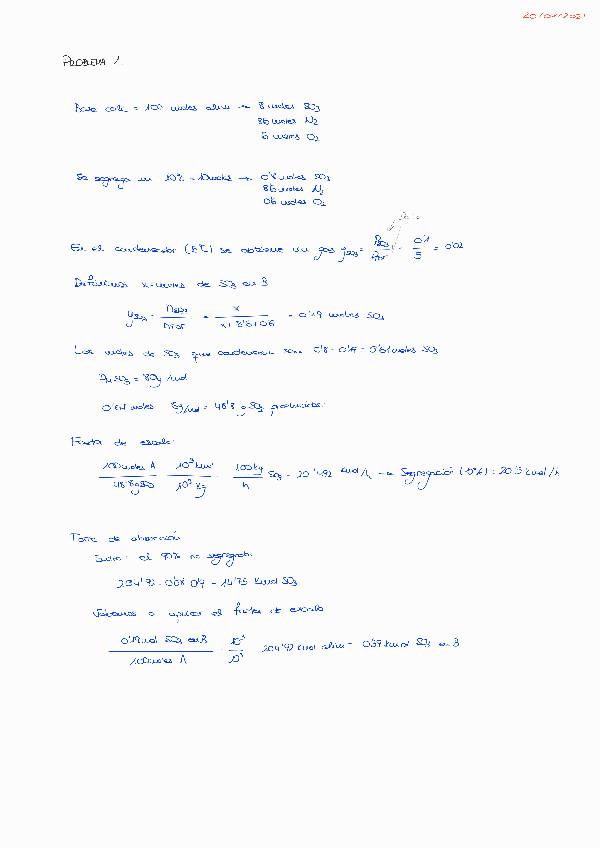 20/01/2021
PROBLEMA 1
Base calc = 100 moles alim → 8 moles SO3
86 moles N2
6 moles O2
Se segrega un 10% = 10 moles → 0'8 moles SO3
8'6 moles N2
0'6 moles O2
En el condensador (0°C) se obtiene un gas ySO3 = PSO3/PTOT = 0'1/5 = 0'02
Definimos x = moles de SO3 en B
ySO3 = nSO3/nTOT = x/x+8'6+0'6 = 0'19 moles SO3
Los moles de SO3 que condensan son: 0'8 - 0'19 = 0'61 moles SO3
PMSO3 = 80g/mol
0'61 moles · 80g/mol = 48'8 g SO3 producidos.
Factor de escala:
100 moles A/48'8 g SO3 · 10³ kmol/10³ kg · 100 kg/h SO3 = 204'92 kmol/h → Segregación (10%) = 20'5 kmol/h
Torre de absorción
Entra: el 90% no segregado:
204'92 · 0'08 · 0'9 = 14'75 kmol SO3
Volvemos a aplicar el factor de escala
0'19 mol SO3 en B/100 moles A · 10³/10³ · 204'92 kmol alim = 0'39 kmol SO3 en B